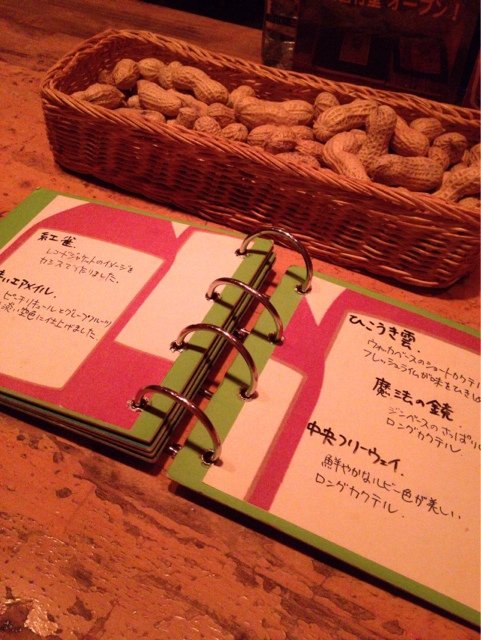 オープン!
紅雀.
レコードジャケットのイメージを
カシスで作りました。
いエアメイル.
ピーチリキュールとグレープフルーツ
淡い空色に仕上げました
ひこうき雲.
ウォッカベースのショートカクテル
フレッシュライムが味をひきし
魔法の鏡.
ジンベースのさっぱりし
ロングカクテル
中央フリーウェイ.
鮮やかなルビー色が美しい
ロングカクテル.